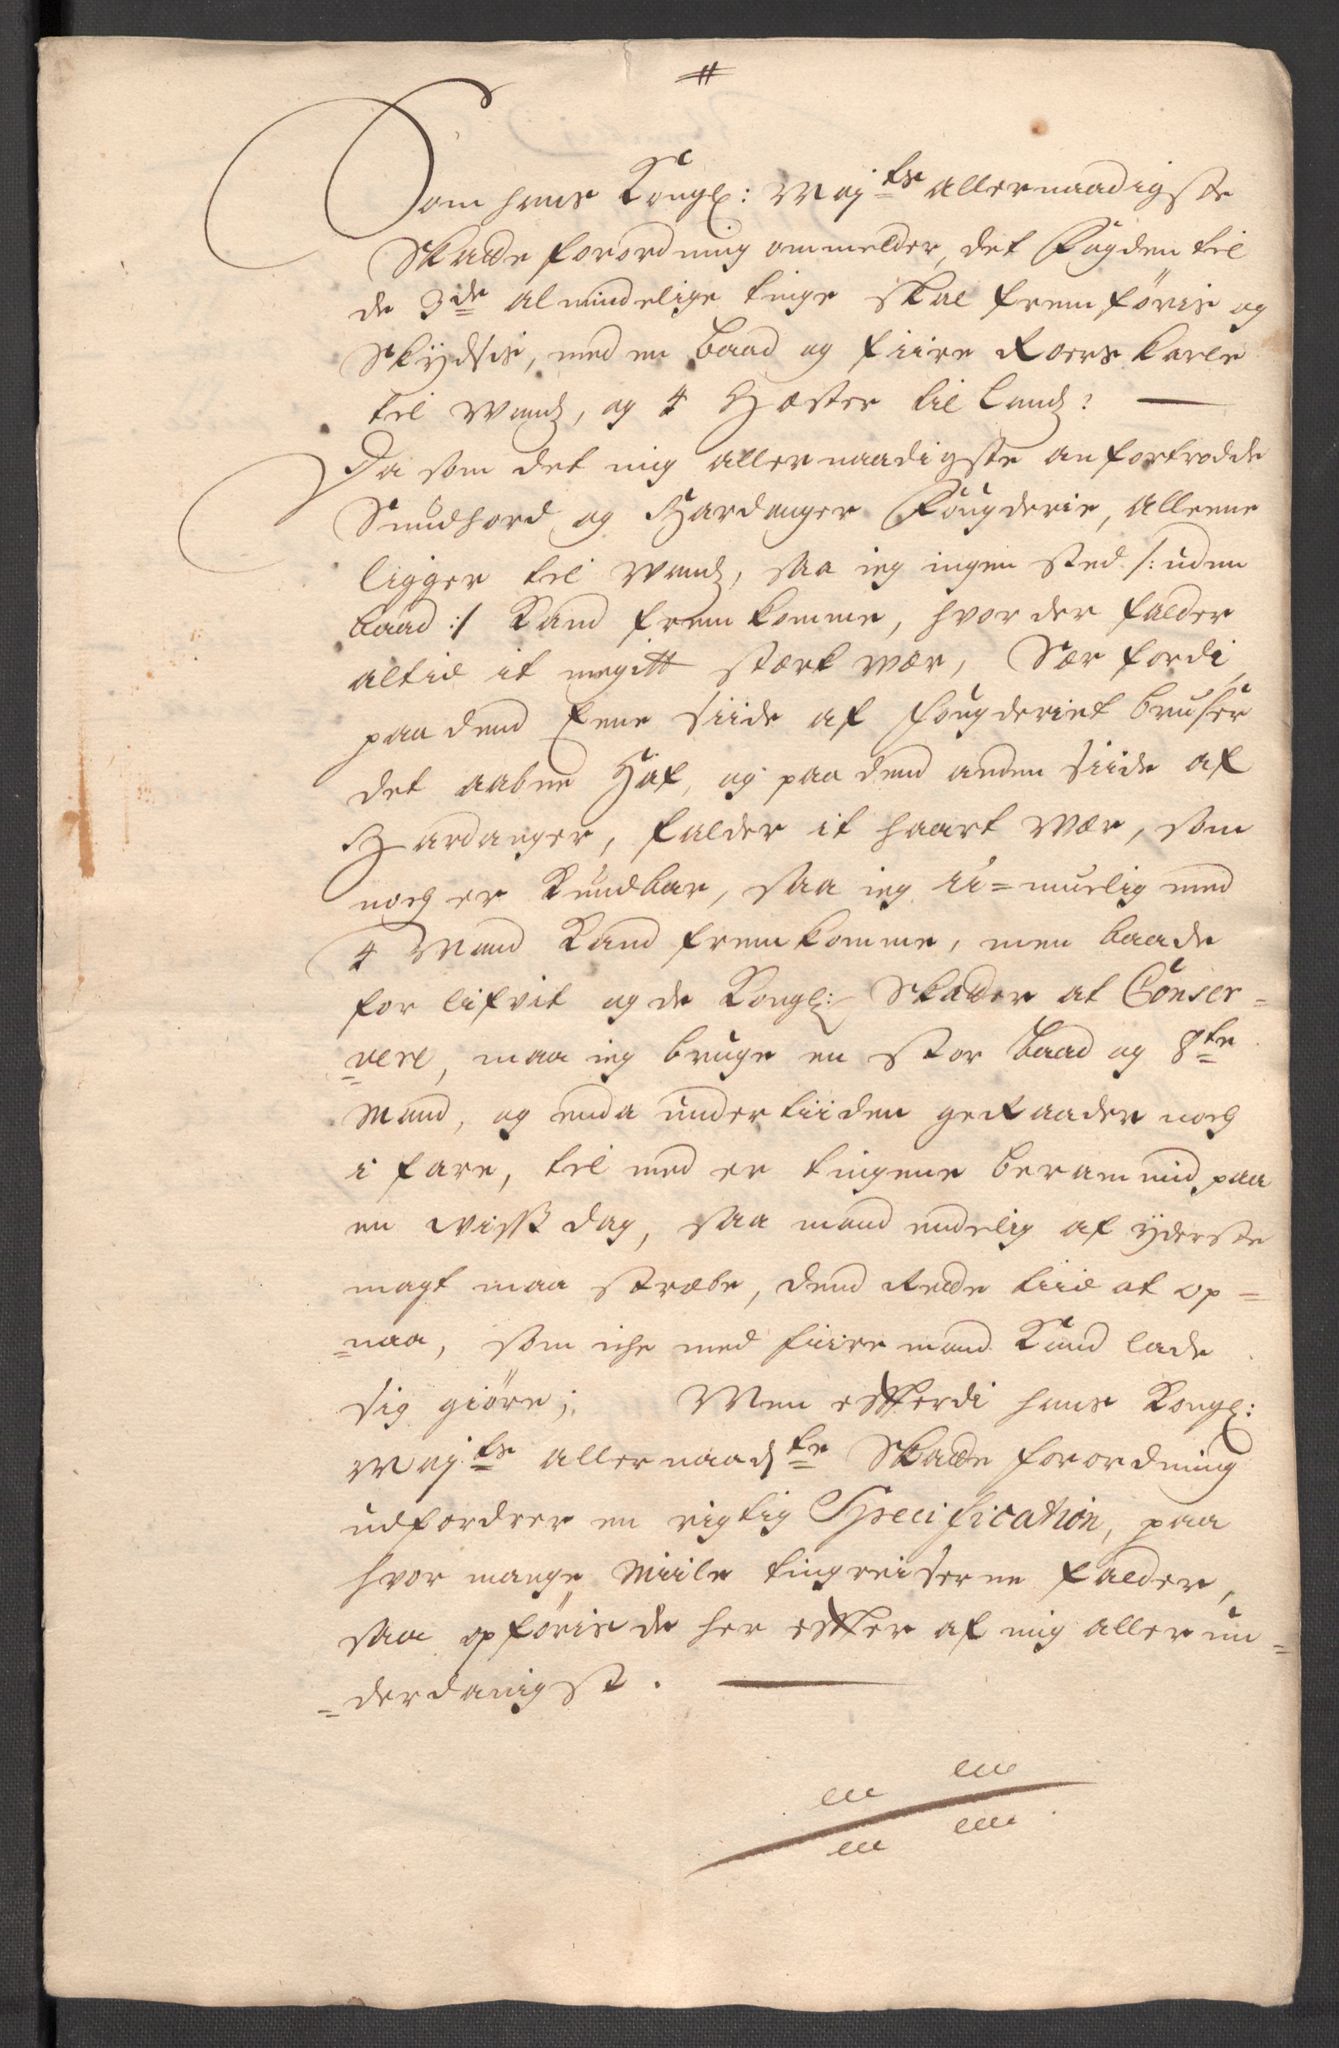 #
Som hans Kongl: Majts allernaadigste
Skatte forordning ommelder, det Fogden til
de 3de almindelige tinge skal fremføris og
Skÿdsis, med en baad og fiire Roers karle
til Wands, og 4 Hæster til Lands? —
Da som det mig allernaadigste anfortrodde
Sundhord og Hardanger Fougderie, alleene
ligger til Wands, saa ieg ingen sted /: uden
baad :/ Kand frem komme, hvor der falder
altid it megitt stærk wær, Sær fordi
paa dend Eene siide af fougderiet bruser
det aabne Haf, og paa dend anden siide af
Hardanger, falder it haart wær, som
nock er Kundbar, saa ieg u=muelig med
4 Mand Kand fremkomme, men baade
for lifvit og de Kongl: Skatter at Conser=
=vere, maa ieg bruge en stor baad og 8te
Mand, og enda undertiiden geraader nock
i fare, til med er tingene berammid paa
en wiss dag, saa mand endelig af ÿderste
magt maa stræbe, dend Rette tiid at op=
=naa, som iche med fiire mand Kand lade
sig giøre; Men efterdi hans Kongl:
Majts allernaadste Skatte forordning
udfordrer en rigtig Specification, paa
hvor mange Miile tingreiserne falder,
saa opføris de her efter af mig allerun=
=derdanigst. —